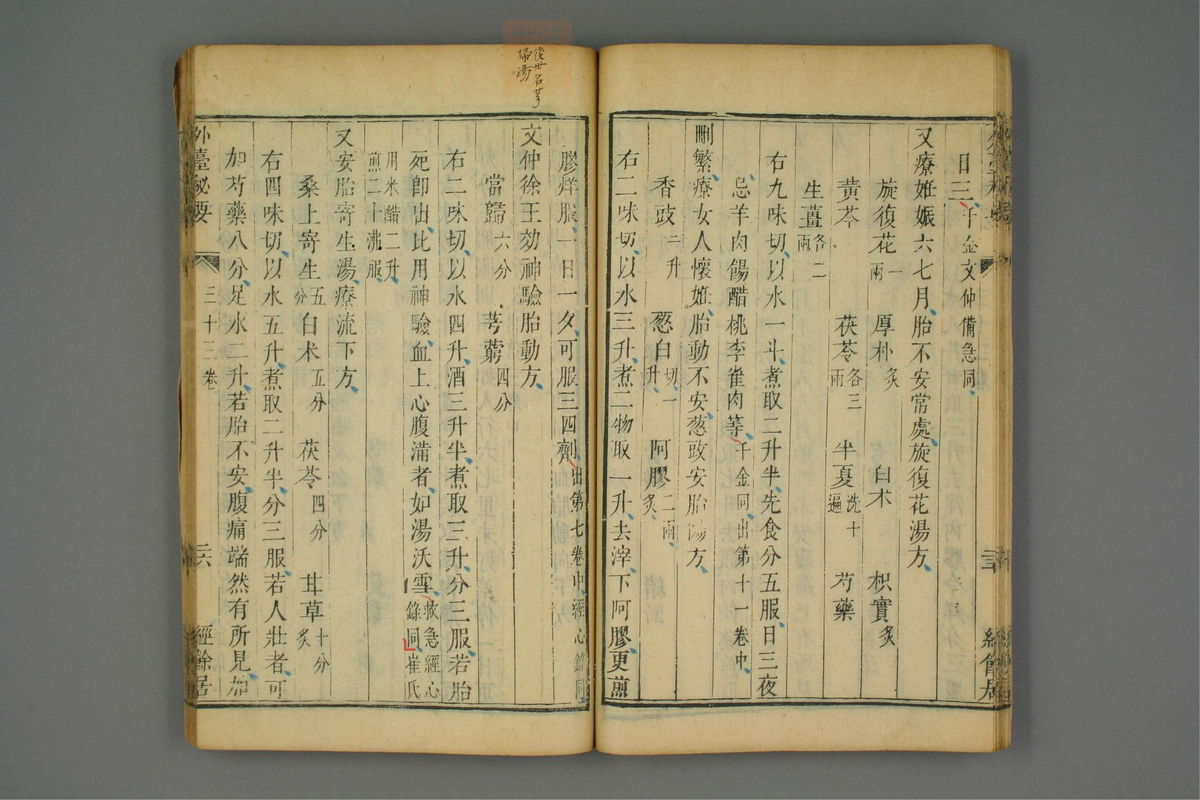 日三千金文仲備急同
又療妊娠六七月胎不安常處旋復花湯方
旋復花一兩 厚朴炙 白术 枳實炙
黃芩 茯苓各三兩 半夏洗十遍 芍藥
生薑各二兩
右九味切以水一斗煮取二升半先食分五服日三夜
忌羊肉餳醋桃李雀肉等千金同出第十一卷中
刪繁療女人懷妊胎動不安葱豉安胎湯方
香豉一升 葱白切一升 阿膠二兩炙
右二味切以水三升煮二物取一升去滓下阿膠更煎
膠烊服一日一夕可服三四劑出第七卷中經心錄同
文仲徐王効神驗胎動方
當歸六分 芎藭四分
右二味切以水四升酒三升半煮取三升分三服若胎
死即出比用神驗血上心腹滿者如湯沃雪救急經心錄同崔氏
用米醋二升煎二十沸服
又安胎寄生湯療流下方
桑上寄生五分 白术五分 茯苓四分 甘草十分炙
右四味切以水五升煮取二升半分三服若人壯者可
加芍藥八分足水二升若胎不安腹痛端然有所見加
外臺秘要 三十三卷 二六 經餘居
後世名芎
歸湯